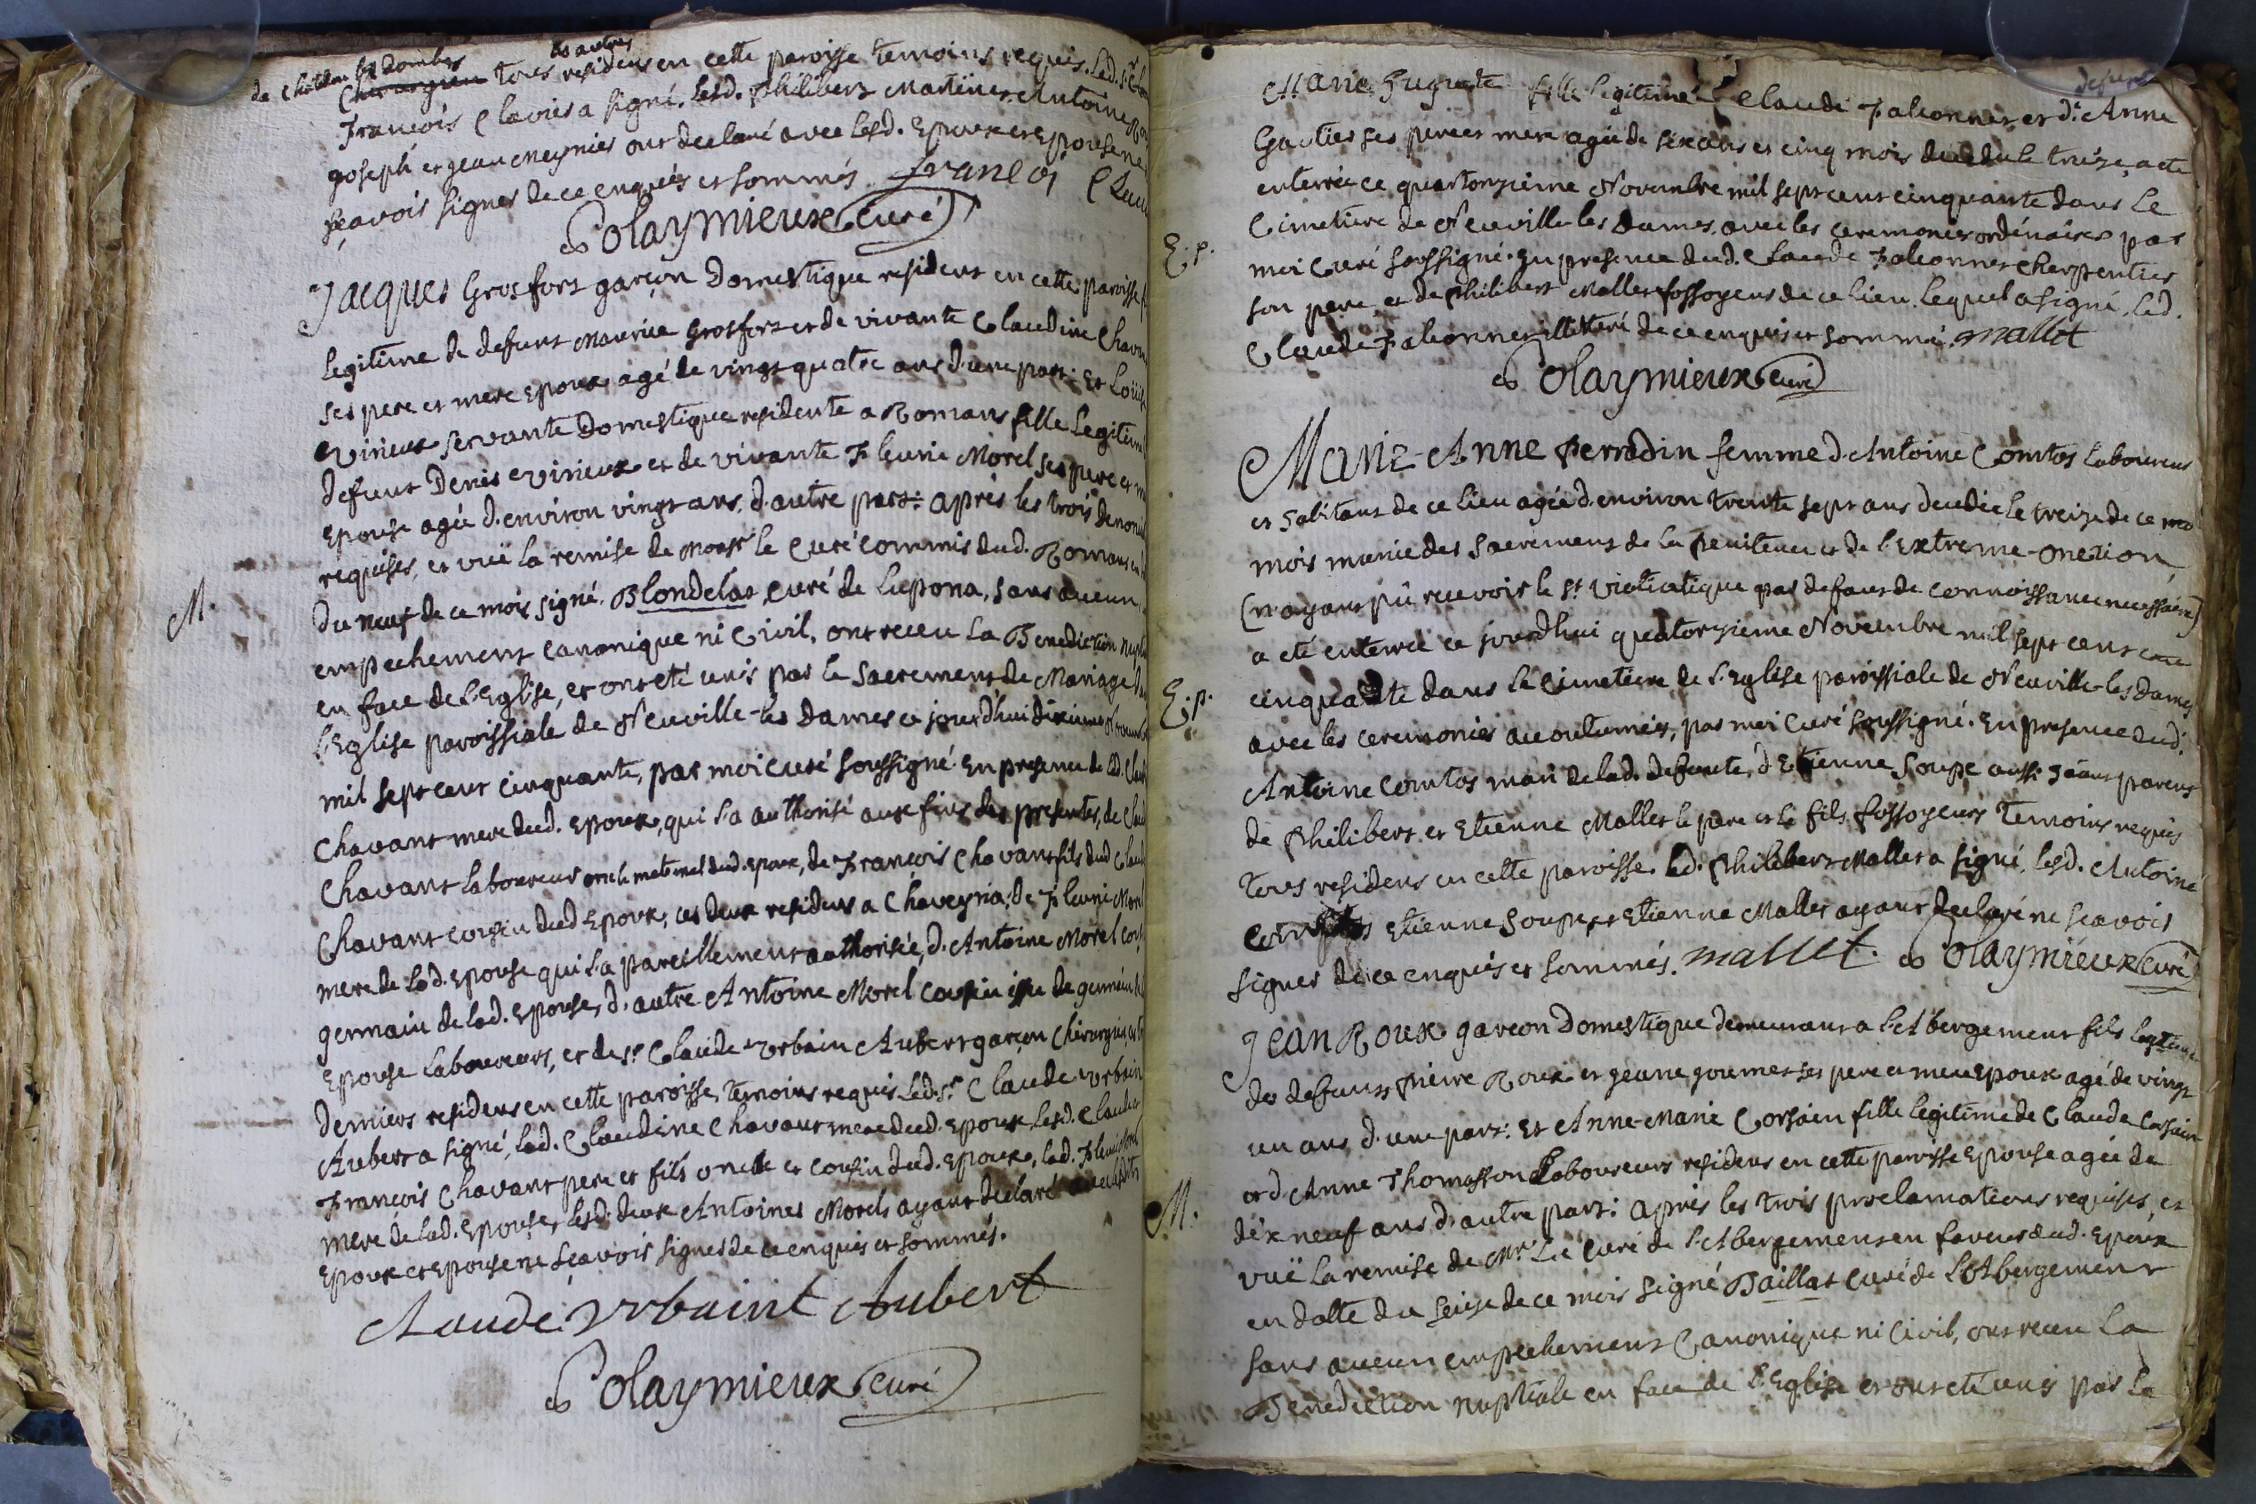 de Chatillon les Dombes
Chirurgien tous les autres residens en cette paroisse temoins requis. Led. Sr
François Clavier a signé. Lesd. Philibert Martin et Antoine
Joseph et Jean Meynier ont declaré avec lesd. Epoux et Epouse ne
sçavoir signer de ce enquis et sommés. françois
Polaymieux Curé
Jacques Grosfort garçon Domestique resident en cette paroisse
legitime de defunt Maurice Grosfort et de vivante Claudine Chavant
ses pere et mere Epoux agé de vingt quatre ans d'une part: Et Louise
Virieux servante Domestique residente a Romans fille Legitime
defunt Denis Virieux et de vivante Fleurie Morel ses pere et
Epouse agée d'environ vingt ans, d'autre part: Après les trois
requises, et vuë la remise de Monsr le Curé commis dud. Romans en
du neuf de ce mois signé. Blondelat, curé de Luponas, sans aucun
empechement canonique ni Civil, ont receu La Benediction
en face de l'Eglise, et ont eté unis par le Sacrement de Mariage
l'Eglise paroissiale de Neuville-les Dames ce jourd'hui dixieme Novembre
mil sept cent cinquante, par moi curé soussigné. En presence de lad.
Chavant mere dud. Epoux, qui l'a authorisé aux fins des presentes, de
Chavant laboureur oncle maternel dud. Epoux, de François Chavant fils dud
Chavant cousin dud Epoux, ces deux residens a Chaveyria; de Fleurie Morel
mere de lad. Epouse qui l'a pareillement authorisée, d'Antoine Morel
germain de lad. Epouse, d'autre Antoine Morel cousin issu de germain
Epouse Laboureurs, et de Sr Claude Urbain Aubert garçon Chirurgien,
derniers residens en cette paroisse, temoins requis. Led. Sr Claude Urbain
Aubert a signé, lad. Claudine Chavant mere dud. Epoux Lesd. Claude
François Chavant pere et fils oncle et cousin dud. Epoux, lad. Fleurie
mere de lad. Epouse, lesd. deux Antoines Morels ayant declaré
Epoux et Epouse ne sçavoir signer de ce enquis et sommés.
M.
Claude Urbaint Aubert
Polaymieux Curé
Marie Huguete fille legitime a Claude Falconnet et de Anne
Gautier ses pere et mere agée de six ans et cinq mois decedée le treize, a eté
enterrée ce quatorzieme Novembre mil sept cent cinquante dans Le
Cimetiere de Neuville les Dames, avec les ceremonies ordinaires par
moi Curé soussigné. En presence dud. Claude Falconnet Charpentier
son pere, et de Philibert Mallet fossoyeur de ce lieu. lequel a signé. led.
Claude Falconnet illiteré de ce enquis et sommé. mallet
E. p.
Polaymieux Curé
Marie-Anne Perradin femme d'Antoine Comtos Laboureur
et habitant de ce lieu agée d'environ trente sept ans decedée le treize de ce
mois munie des Sacremens de la Penitence et de l'Extreme-Onction,
(n'ayant pû recevoir le St Viaticatique par defaut de connoissance necessaire)
a eté enterrée ce jourd'hui quatorzieme Novembre mil sept cent
cinquante dans le Cimetiere de l'Eglise paroissiale de Neuville-les Dames
avec les ceremonies accoutumées, par moi Curé soussigné. En presence dud.
Antoine Comtos mari de lad. defunte, d'Etienne Soupe aussi parent
de Philibert et Etienne Mallet le pere et le fils fossoyeurs Temoins requis
tous residens en cette paroisse. led. Philibert Mallet a signé, lesd. Antoine
Comtos Etienne Soupe et Etienne Mallet ayant declaré ne scavoir
signer de ce enquis et sommés. mallet. Polaymieux Curé
E. p.
Jean Roux garcon Domestique demeurant a l'Abergement fils legitime
de defunts Pierre Roux et Jeane Gourmet ses pere et mere Epoux agé de vingt
un ans, d'une part: Et Anne-Marie Corsain fille legitime de Claude Corsain
et d'Anne Thomasson Laboureurs residens en cette paroisse Epouse agée de
dix neuf ans d'autre part: Après les trois proclamations requises, et
vuë La remise de Mr Le Curé de l'Abergement en faveur dud. Epoux
en datte du seize de ce mois signé Baillat curé de L'Abergement
sans aucun empechement Canonique ni Civil, ont receu La
Benediction nuptiale en face de l'Eglise et ont eté unis par Le
M.